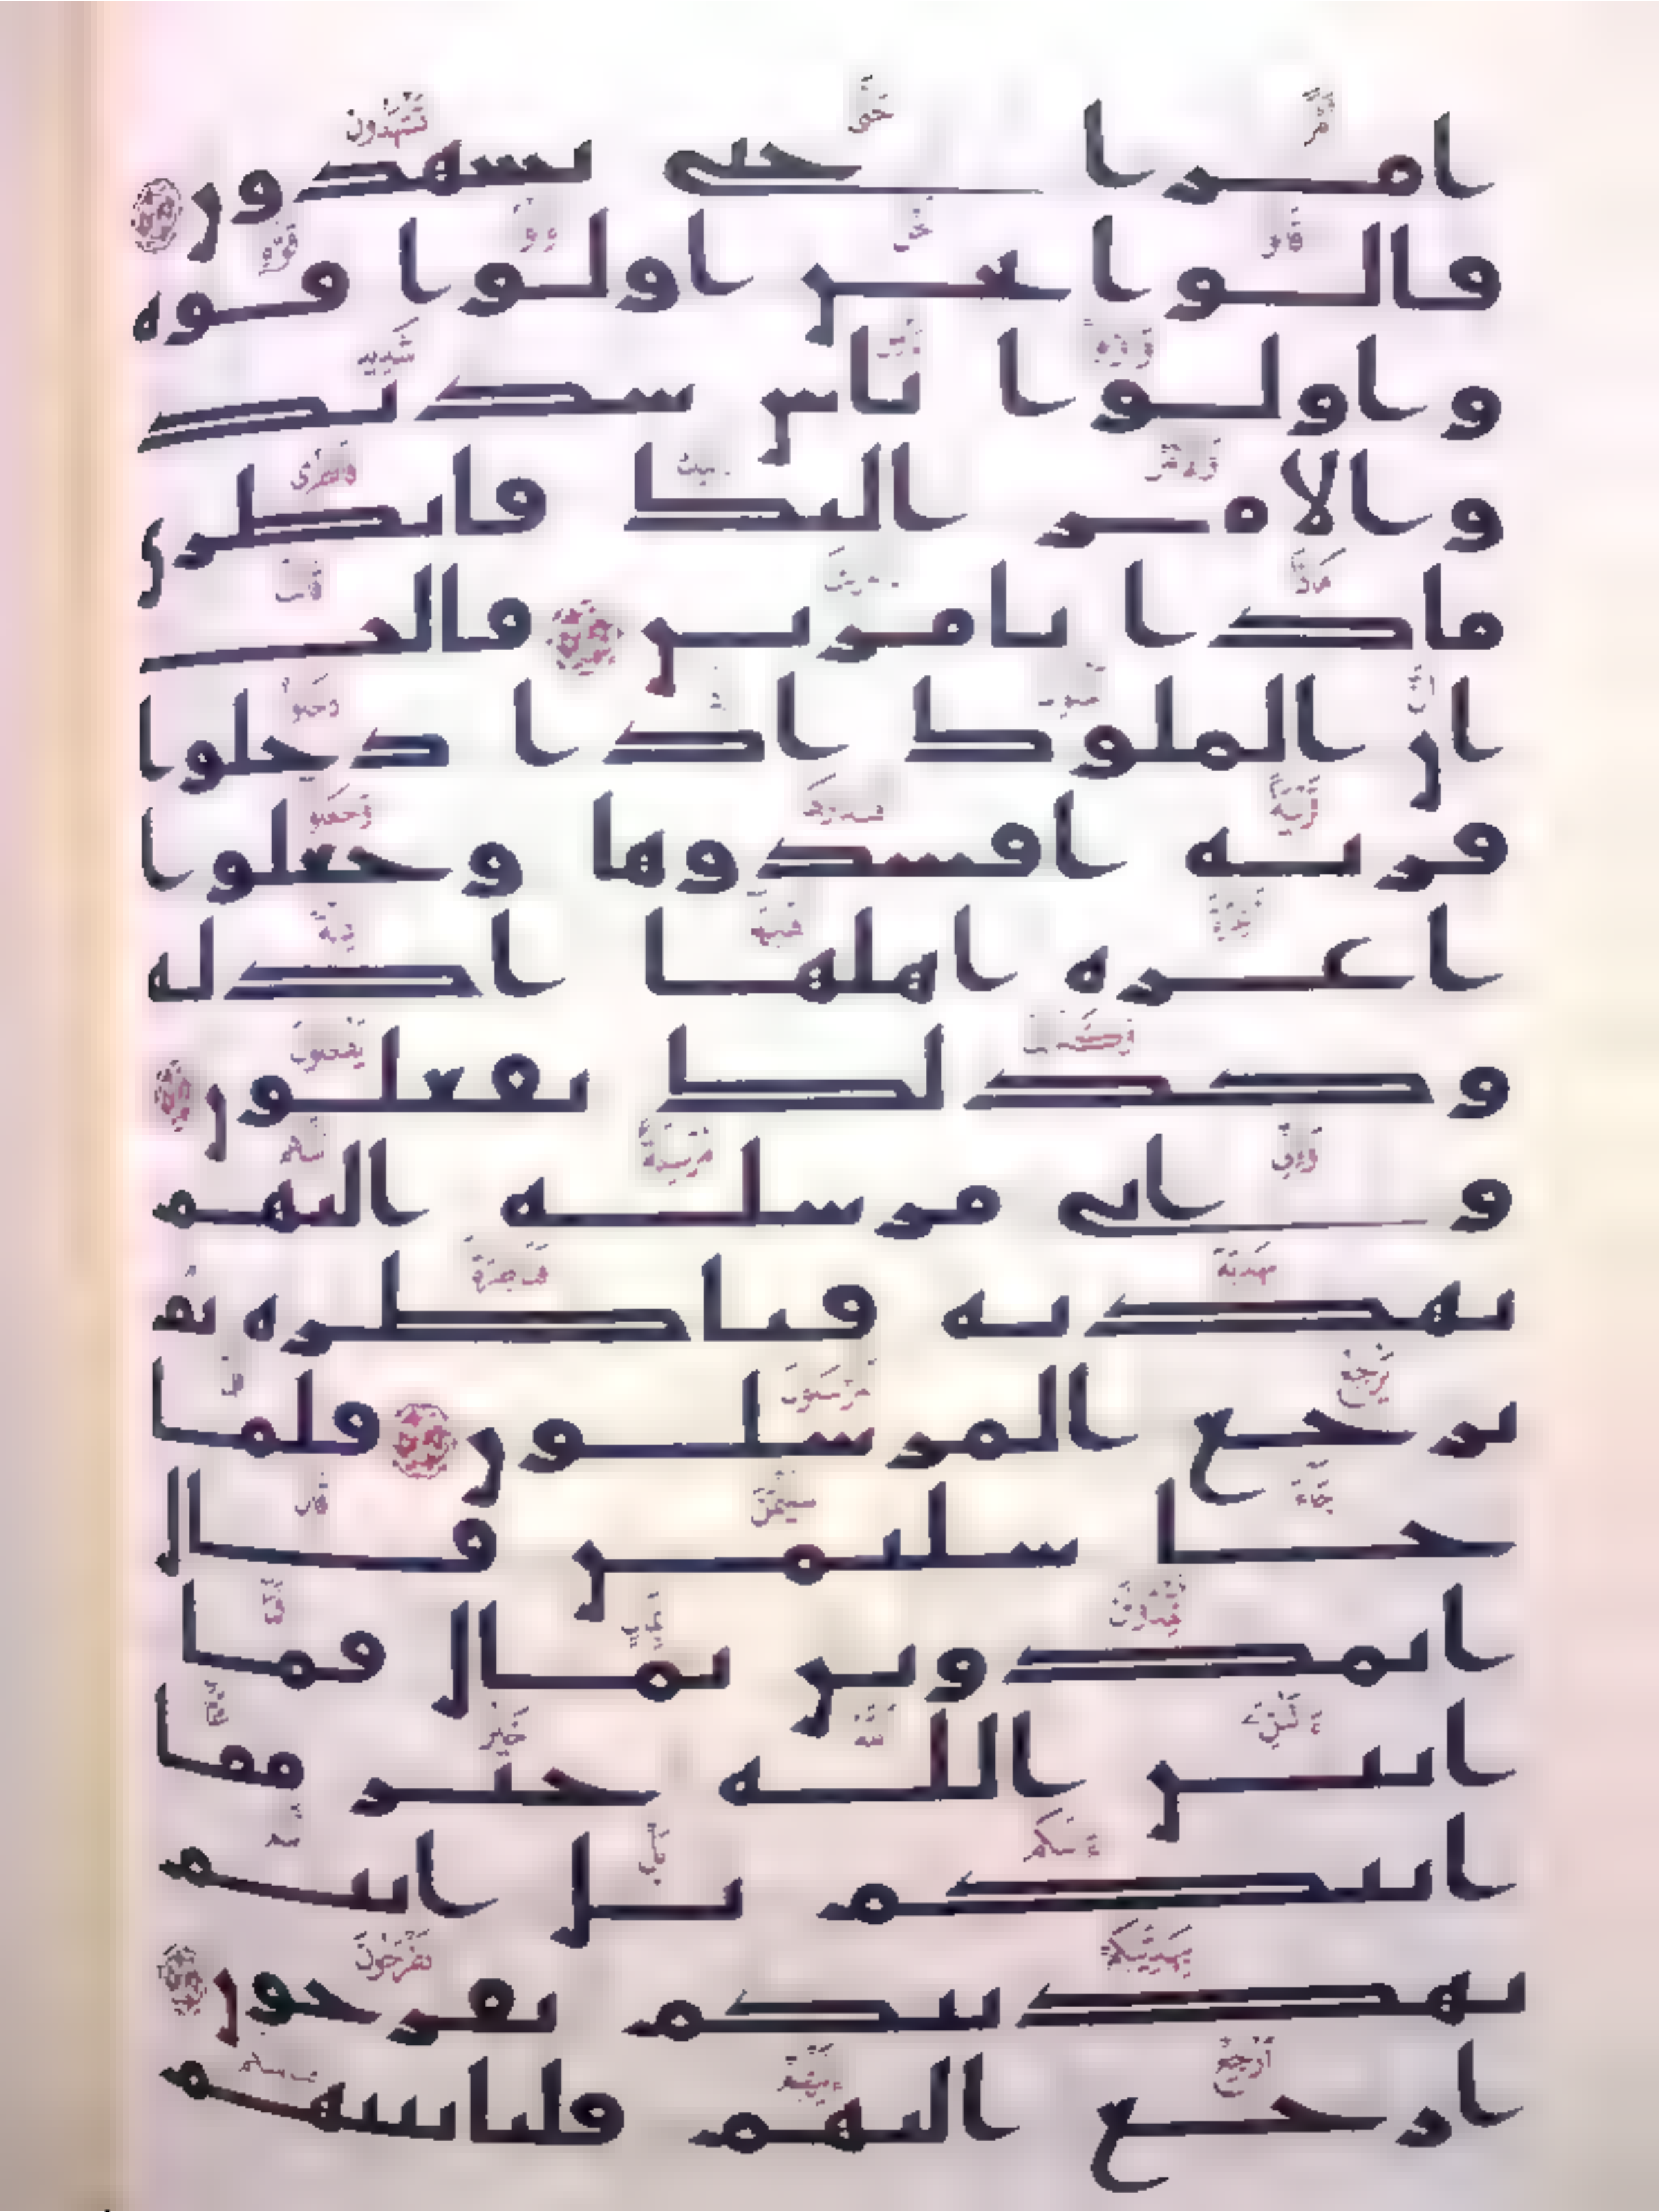 امرا حتى تشهدون
قالوا نحن اولوا قوة
واولوا باس شديد
والامر اليك فانظري
ماذا تامرين قالت
ان الملوك اذا دخلوا
قرية افسدوها وجعلوا
اعزة اهلها اذلة
وكذلك يفعلون
واني مرسلة اليهم
بهدية فناظرة بم
يرجع المرسلون فلما
جا سليمن قال
اتمدونن بمال فما
اتين الله خير مما
اتيكم بل انتم
بهديتكم تفرحون
ارجع اليهم فلناتينهم